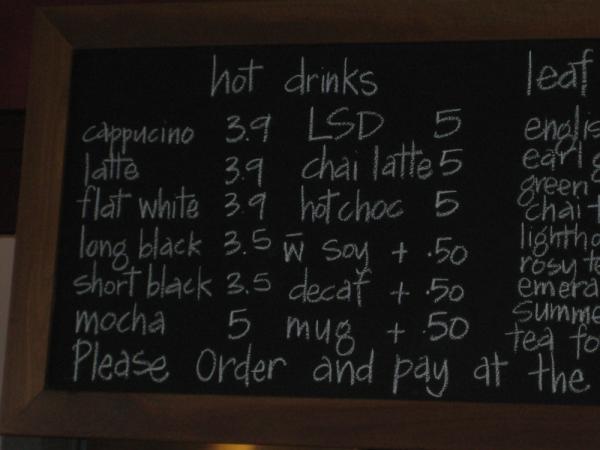 hot drinks
cappucino 3.9
latte 3.9
flat white 3.9
long black 3.5
short black 3.5
mocha 5
LSD 5
chai latte 5
hot choc 5
w̄ soy + .50
decaf + .50
mug + .50
leaf
englis
earl g
green
chai t
lightho
rosy te
emera
summe
tea fo
Please Order and pay at the